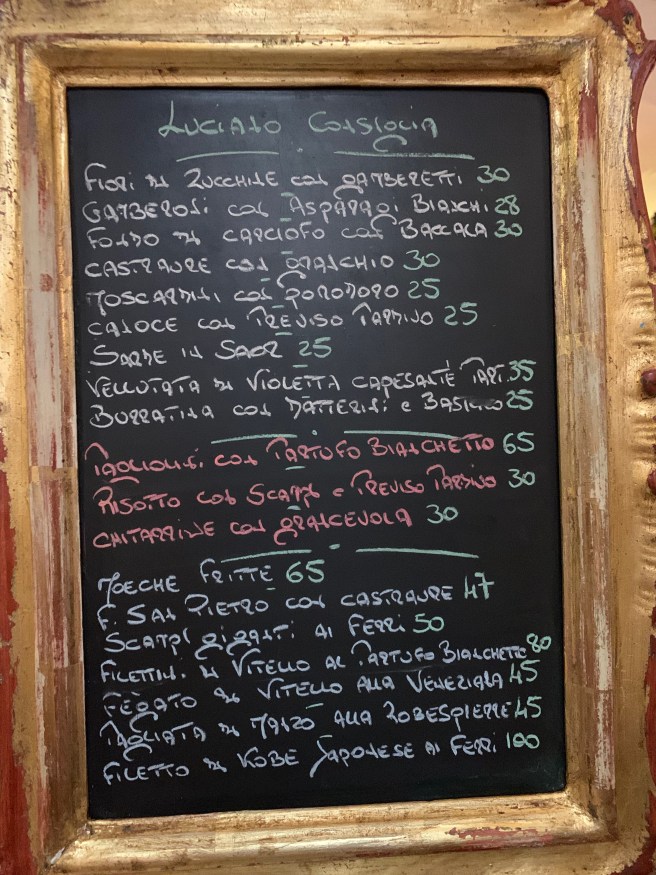 LUCIANO CONSIGLIA
FIORI DI ZUCCHINE CON GAMBERETTI 30
GAMBERONI CON ASPARAGI BIANCHI 28
FONDO DI CARCIOFO CON BACCALA 30
CASTRAURE CON GRANCHIO 30
MOSCARDINI CON POMODORO 25
CANOCE CON TREVISO TARDIVO 25
SARDE IN SAOR 25
VELLUTATA DI VIOLETTA CAPESANTE TART. 35
BURRATINA CON DATTERINI E BASILICO 25
TAGLIOLINI CON TARTUFO BIANCHETTO 65
RISOTTO CON SCAMPI E TREVISO TARDIVO 30
CHITARRINE CON GRANCEVOLA 30
MOECHE FRITTE 65
F. SAN PIETRO CON CASTRAURE 47
SCAMPI GIGANTI AI FERRI 50
FILETTINI DI VITELLO AL TARTUFO BIANCHETTO 80
FEGATO DI VITELLO ALLA VENEZIANA 45
TAGLIATA DI MANZO ALLA ROBESPIERRE 45
FILETTO DI KOBE JAPONESE AI FERRI 100